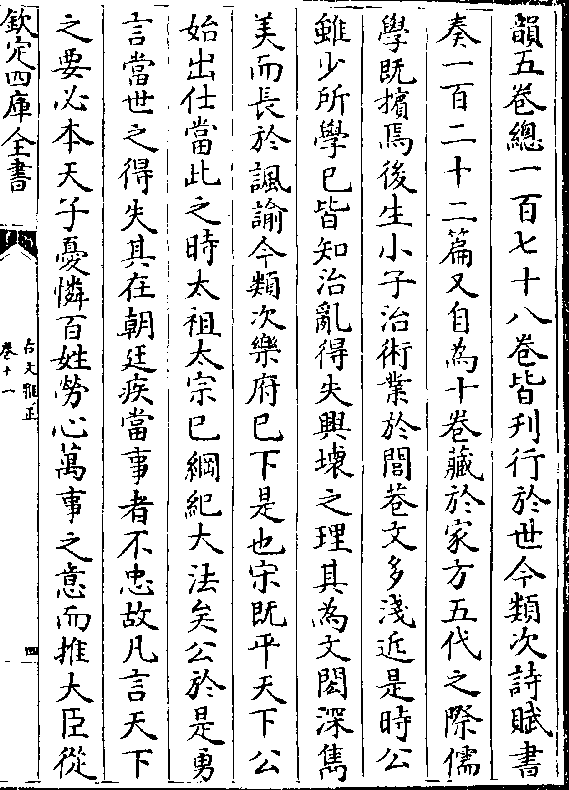 韻五卷總一百七十八卷皆刋行於世今類次詩賦書
奏一百二十二篇又自為十卷藏於家方五代之際儒
學既擯焉後生小子治術業於閭巷文多淺近是時公
雖少所學已皆知治亂得失興壞之理其為文閎深雋
美而長於諷諭今類次樂府已下是也宋既平天下公
始出仕當此之時太祖太宗已綱紀大法矣公於是勇
言當世之得失其在朝廷疾當事者不忠故凡言天下
之要必本天子憂憐百姓勞心萬事之意而推大臣從
欽定四庫全書
古文雅正
卷十一
四